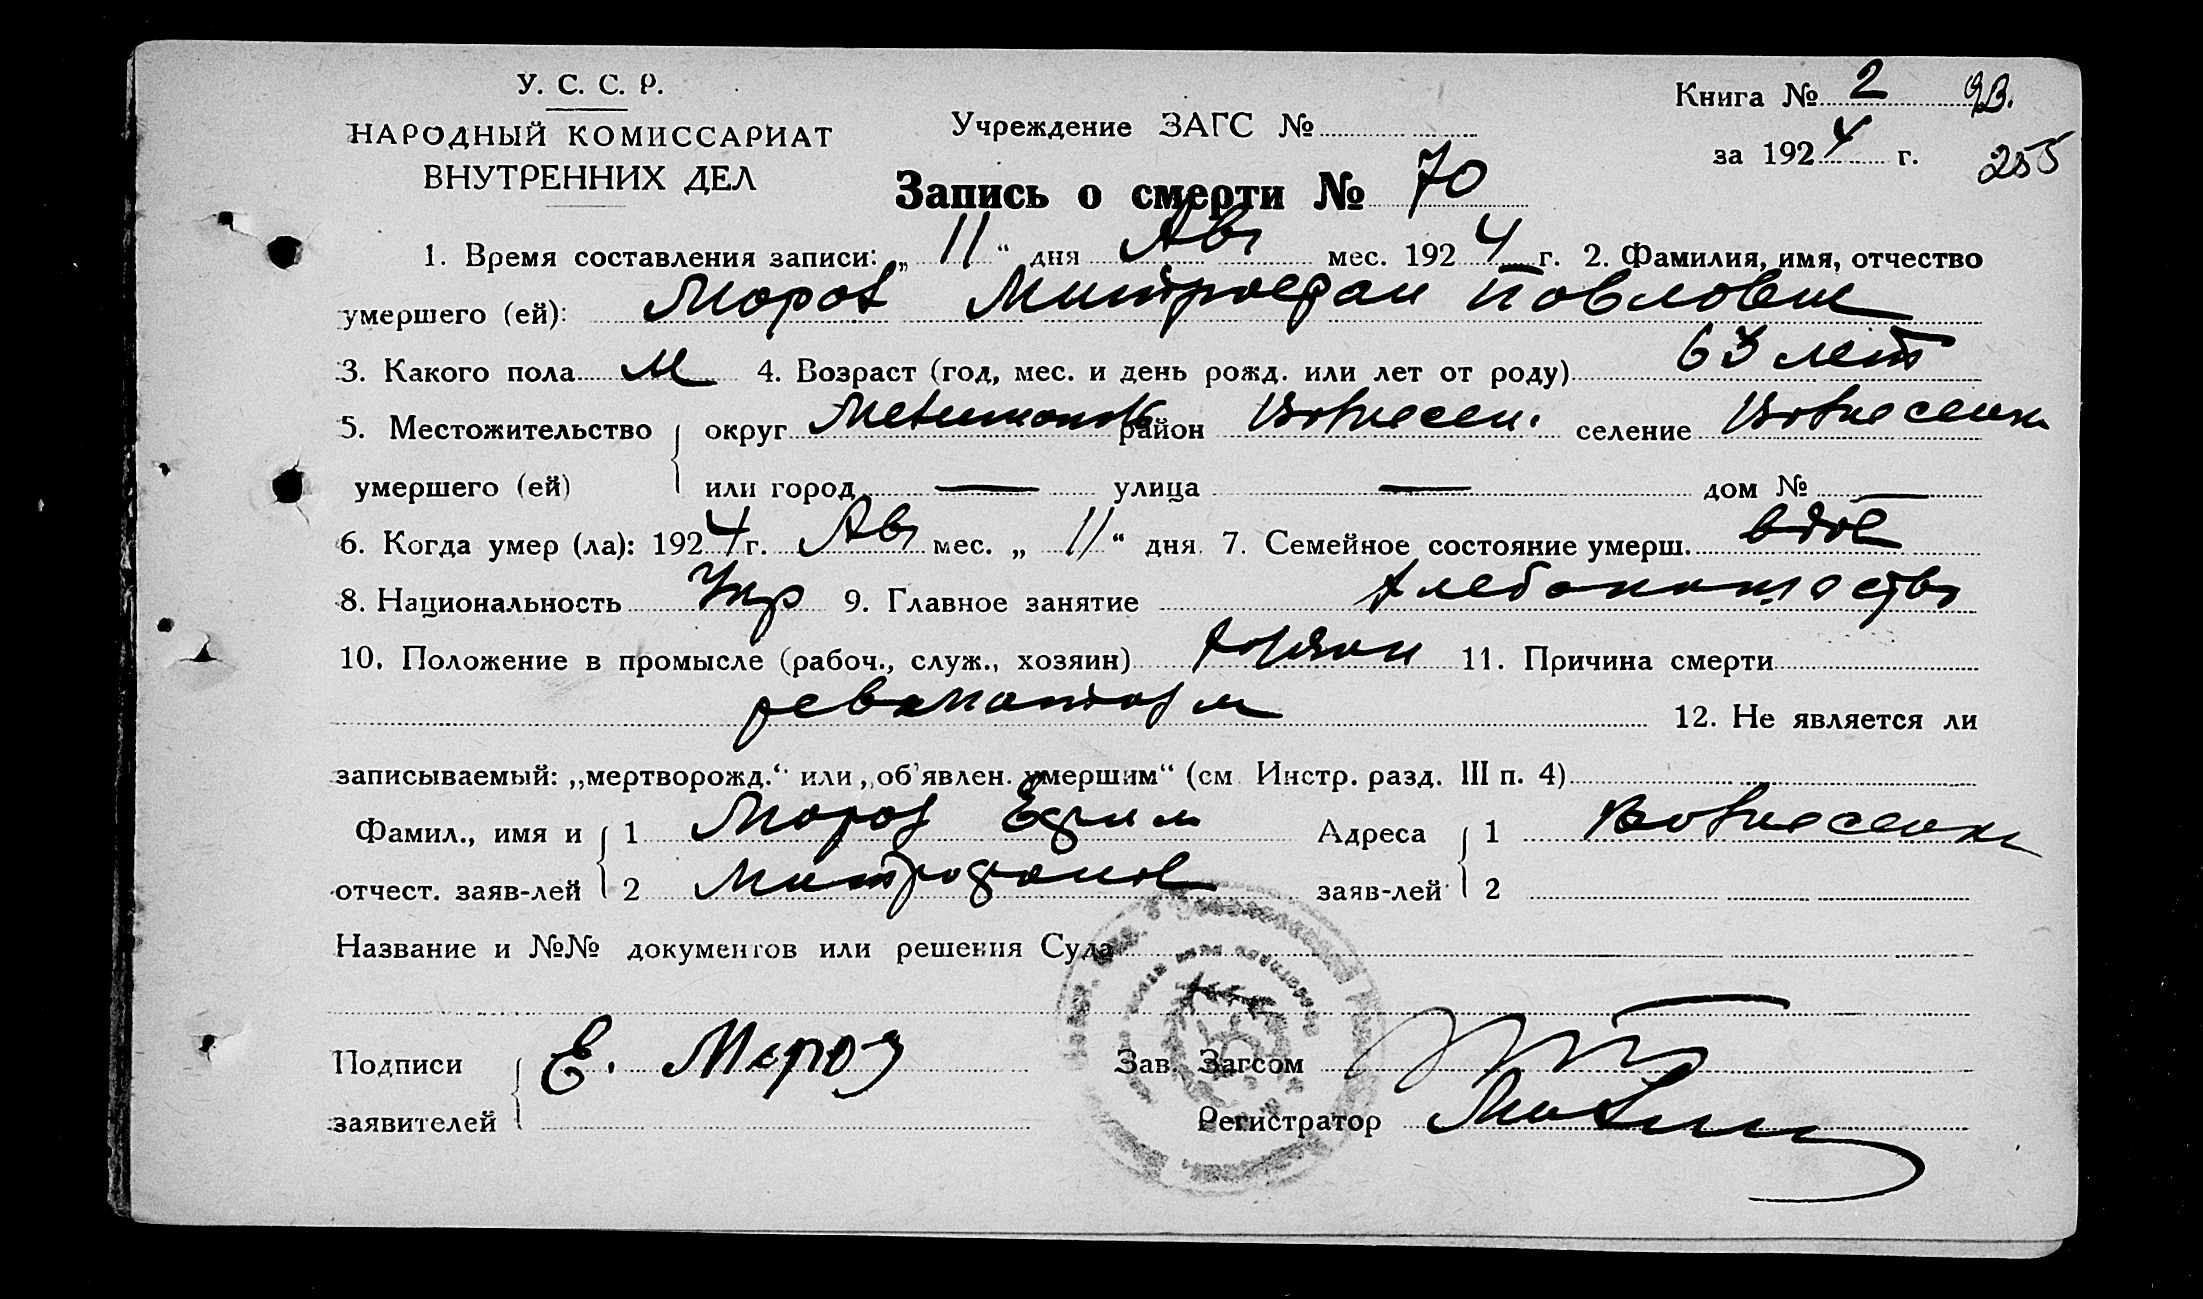 У. С. С. Р.
НАРОДНЫЙ КОМИССАРИАТ
ВНУТРЕННИХ ДЕЛ
Учреждение ЗАГС №
Книга № 2 93.
за 1924 г. 255
Запись о смерти № 70
1. Время составления записи: „ 11 “ дня Авг мес. 1924 г. 2. Фамилия, имя, отчество
умершего (ей): Мороз Митрофан Павлович
3. Какого пола М 4. Возраст (год, мес. и день рожд. или лет от роду) 63 лет
5. Местожительство округ район Вознесен. селение Вознесенка
умершего (ей) или город — улица — дом № —
6. Когда умер (ла): 1924 г. Авг мес. „ 11 “ дня 7. Семейное состояние умерш. вдов
8. Национальность Укр 9. Главное занятие хлебопашество
10. Положение в промысле (рабоч., служ., хозяин) хозяин 11. Причина смерти
ревматизм 12. Не является ли
записываемый: „мертворожд.“ или „об'явлен. умершим“ (см. Инстр. разд. III п. 4)
Фамил., имя и 1 Мороз Ефим Адреса 1 Вознесенка
отчест. заяв-лей 2 Митрофанов заяв-лей 2
Название и №№ документов или решения Суда
Подписи Е. Мороз Зав. Загсом
заявителей Регистратор